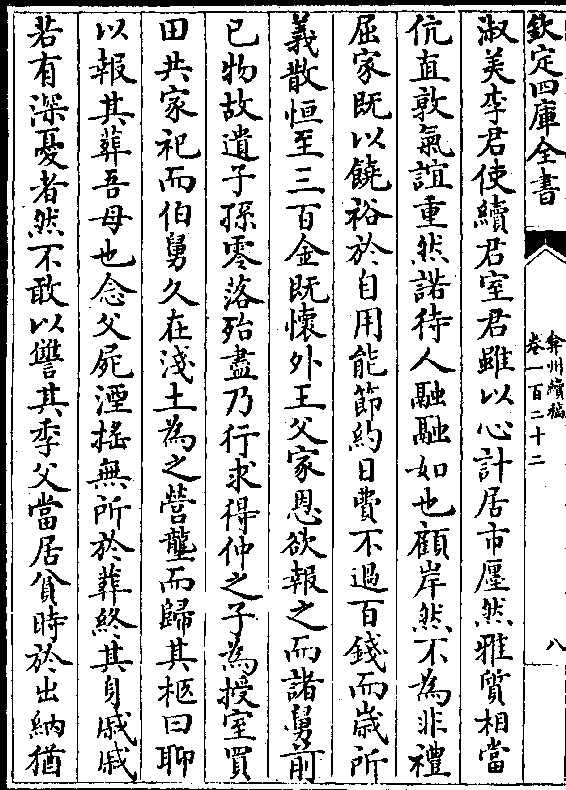 欽定四庫全書
弇州續稿
卷一百二十二
八
淑美李君使續君室君雖以心計居市廛然雅質相當
伉直敦氣誼重然諾待人融融如也顧岸然不為非禮
屈家既以饒裕於自用能節約日費不過百錢而歲所
義散恒至三百金既懷外王父家恩欲報之而諸舅前
已物故遺子孫零落殆盡乃行求得仲之子為授室買
田共家祀而伯舅久在淺土為之營壟而歸其柩曰聊
以報其葬吾母也念父屍湮揺無所於葬終其身戚戚
若有深憂者然不敢以讐其季父當居貧時於出納猶